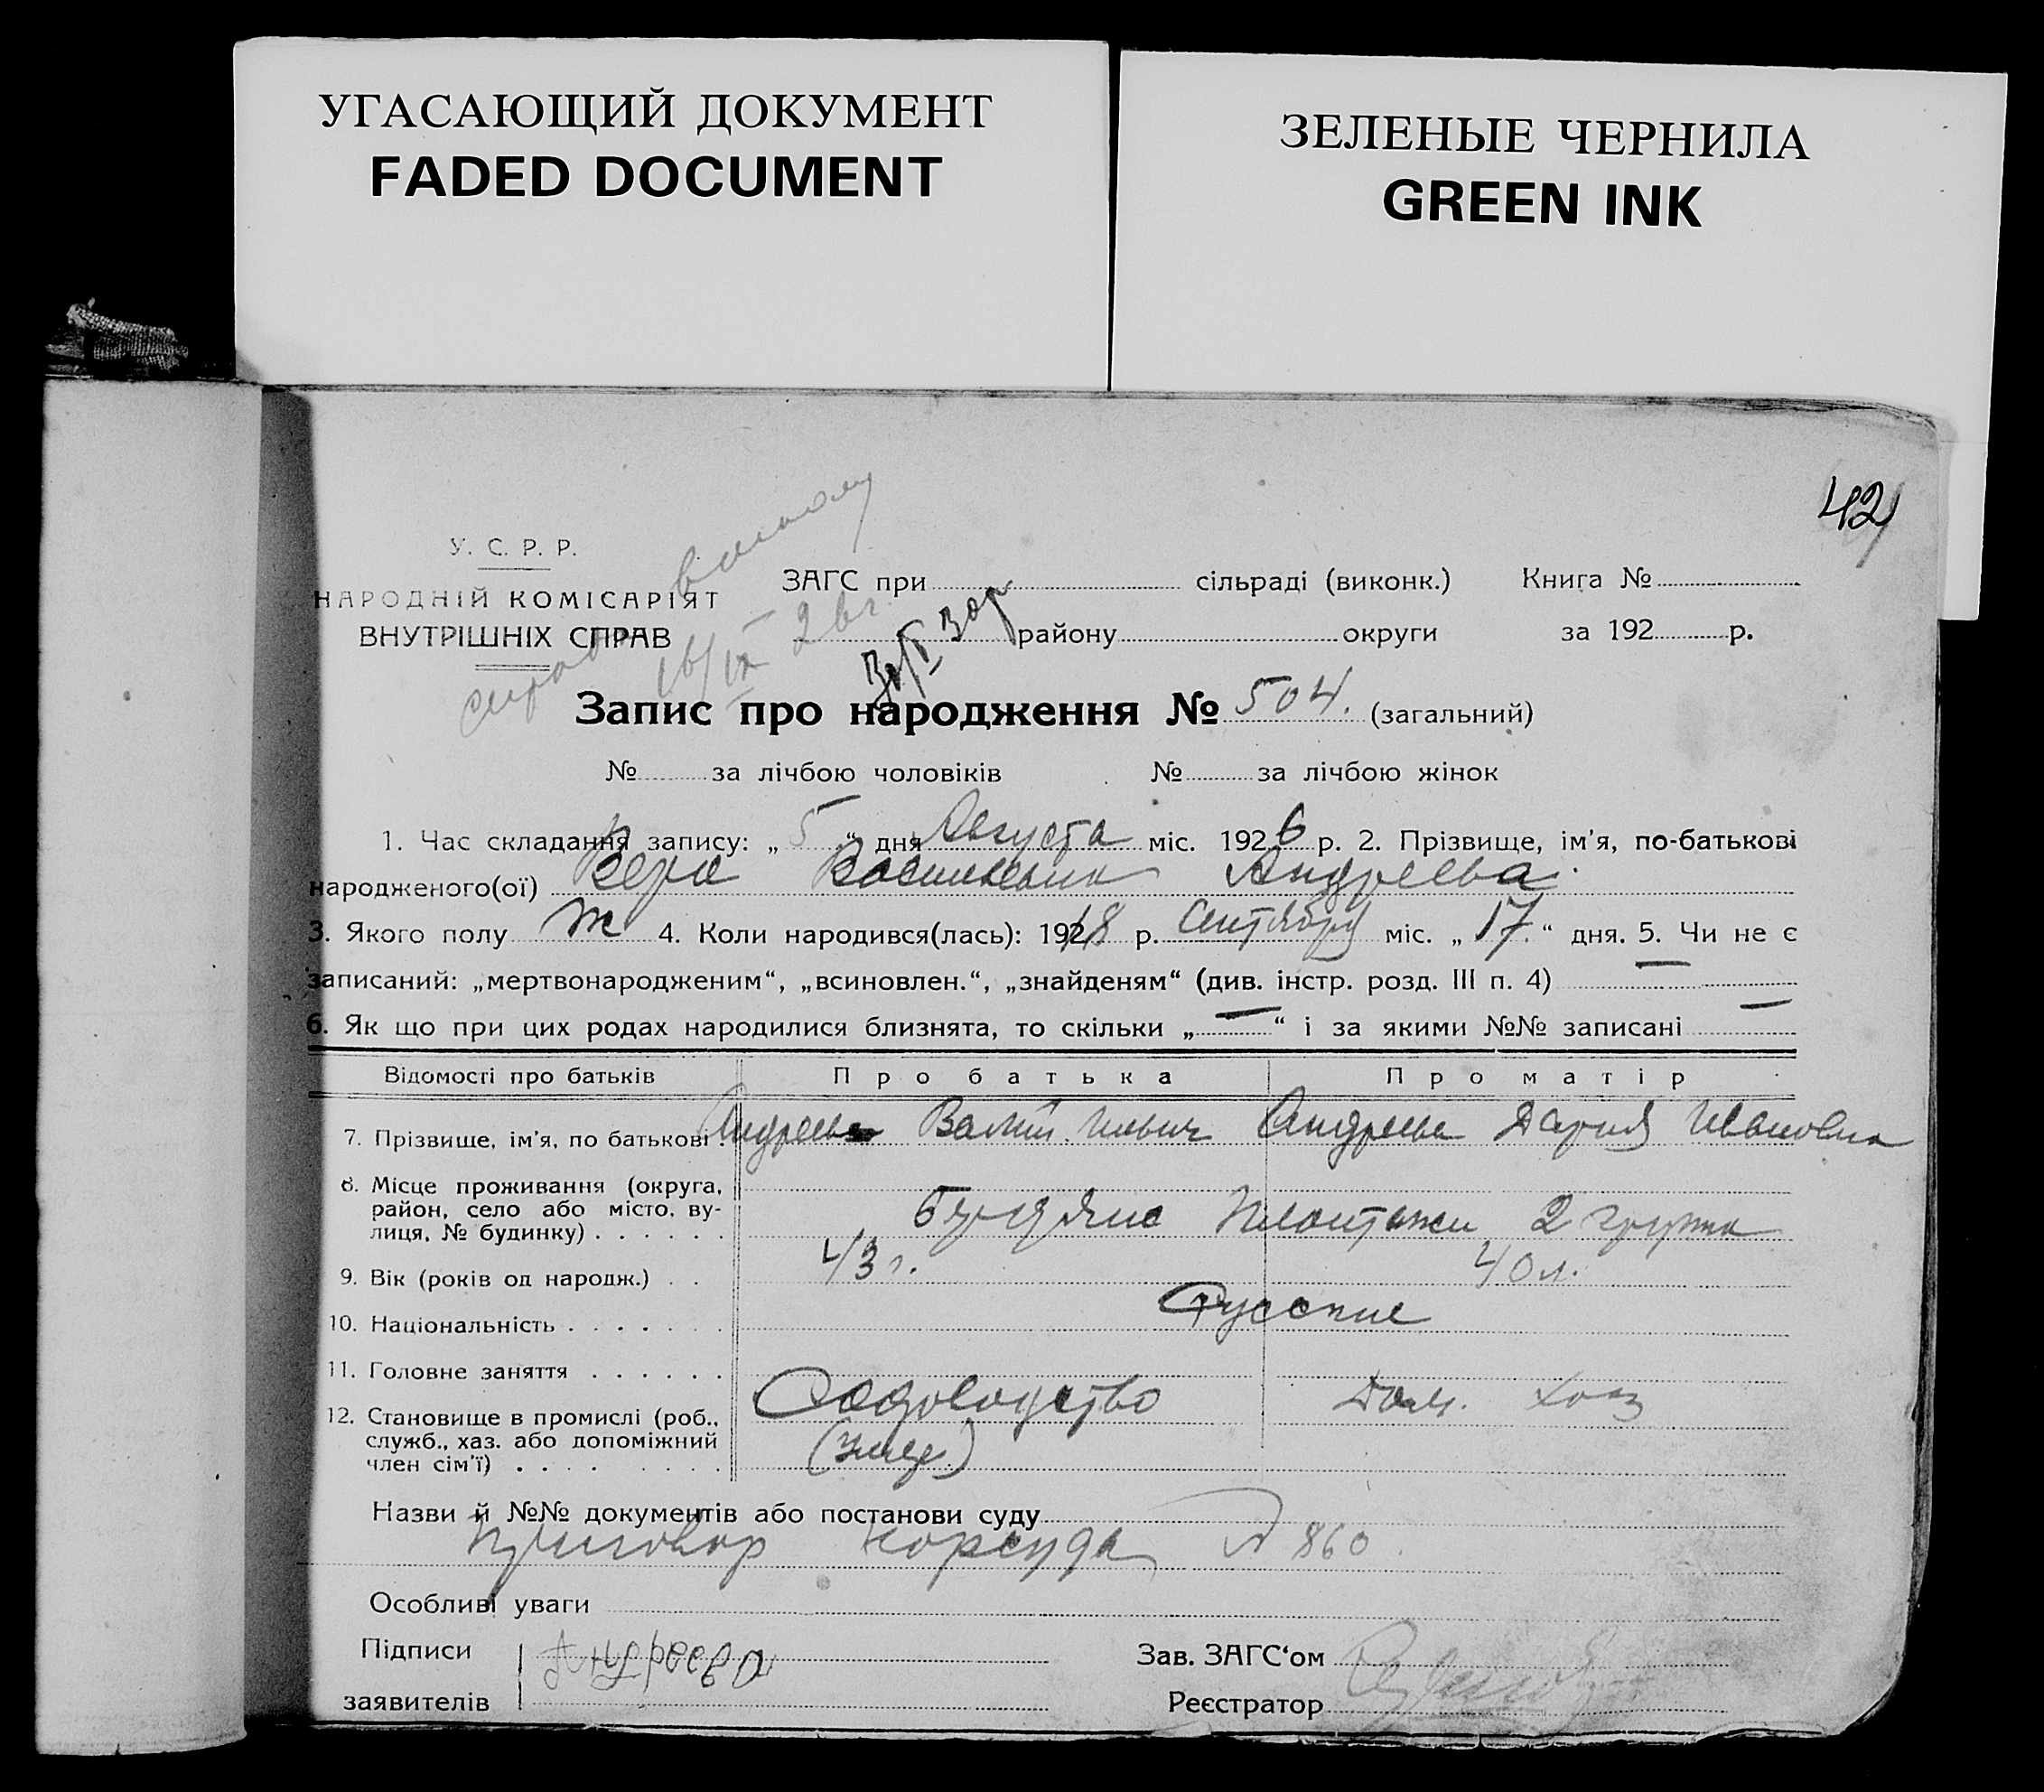 УГАСАЮЩИЙ ДОКУМЕНТ
FADED DOCUMENT
ЗЕЛЕНЫЕ ЧЕРНИЛА
GREEN INK
42
У. С. Р. Р.
НАРОДНІЙ КОМІСАРІЯТ
ВНУТРІШНІХ СПРАВ
ЗАГС при сільраді (виконк.) Книга №
району округи за 192 р.
Запис про народження № 504. (загальний)
№ за лічбою чоловіків № за лічбою жінок
1. Час складання запису: „ 5 “ дня Августа міс. 1926 р. 2. Прізвище, ім'я, по-батькові
народженого(ої) Вера Васильевна Андреева.
3. Якого полу Ж 4. Коли народився(лась): 1918 р. Сентября міс. „ 17. “ дня. 5. Чи не є
записаний: „мертвонародженим“, „всиновлен.“, „знайденям“ (див. інстр. розд. III п. 4) —
6. Як що при цих родах народилися близнята, то скільки „ — “ і за якими №№ записані —
Відомості про батьків Про батька Про матір
7. Прізвище, ім'я, по батькові Андреев Ильич Андреева Дария Ивановна
8. Місце проживання (округа,
район, село або місто, ву-
лиця, № будинку) 2 группа
9. Вік (років од народж.) 43 г. 40 л.
10. Національність Русские
11. Головне заняття
Садоводство Дом. хоз
12. Становище в промислі (роб.,
служб., хаз. або допоміжний
член сім'ї)
Назви й №№ документів або постанови суду
Приговор Нарсуда № 860.
Особливі уваги
Підписи Андреева Зав. ЗАГС'ом
заявителів Реєстратор